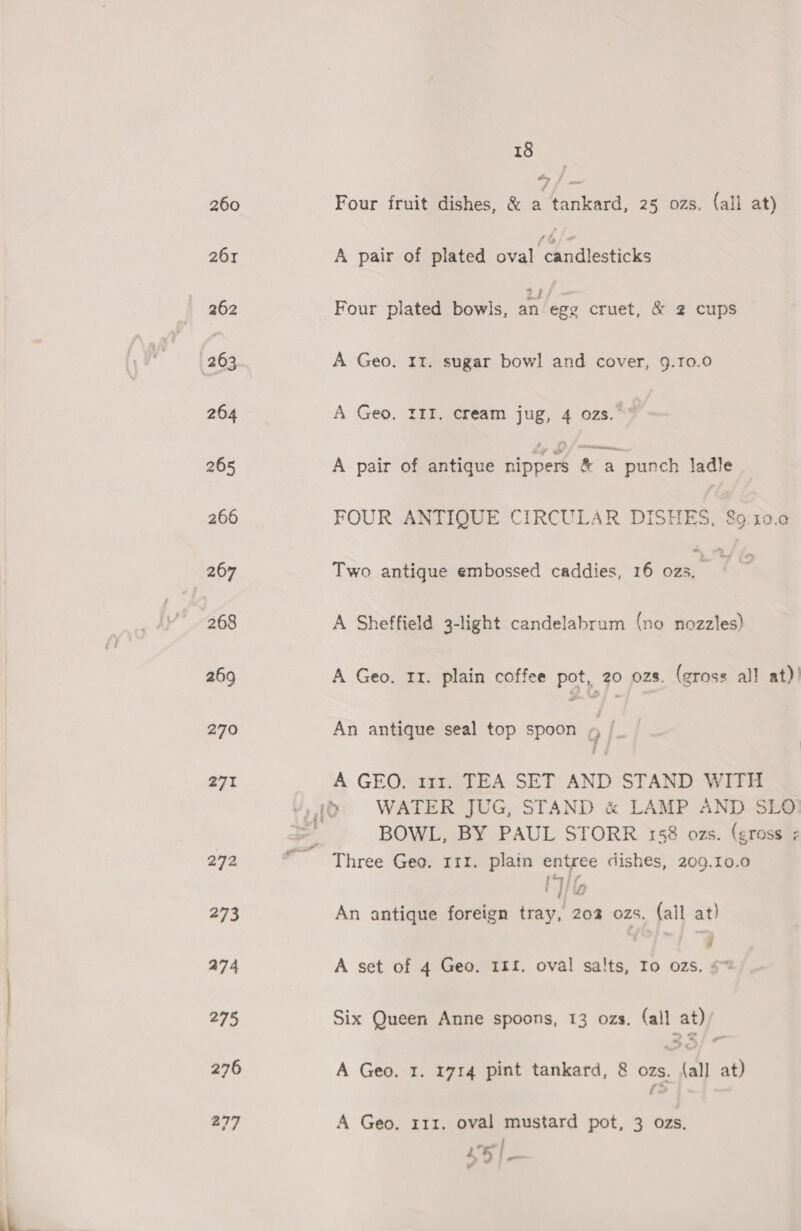 18
7/-
260 Four fruit dishes, & a tankard, 25 ozs. (all at)
16/-
261 A pair of plated oval candlesticks
11/-
262 Four plated bowls, an egg cruet, & 2 cups
263 A Geo. II. sugar bowl and cover, 9.10.0
264 A Geo. III. cream jug, 4 ozs.
265 A pair of antique nippers & a punch ladle
266 FOUR ANTIQUE CIRCULAR DISHES, 89.10.0
267 Two antique embossed caddies, 16 ozs.
268 A Sheffield 3-light candelabrum (no nozzles)
269 A Geo. II. plain coffee pot, 20 ozs. (gross all at)
270 An antique seal top spoon
271 A GEO. III. TEA SET AND STAND WITH
WATER JUG, STAND & LAMP AND
BOWL, BY PAUL STORR 158 ozs. (gross
272 Three Geo. III. plain entree dishes, 209.10.0
17/6
273 An antique foreign tray, 202 ozs. (all at)
274 A set of 4 Geo. III. oval salts, 10 ozs.
275 Six Queen Anne spoons, 13 ozs. (all at)
33/-
276 A Geo. I. 1714 pint tankard, 8 ozs. (all at)
277 A Geo. III. oval mustard pot, 3 ozs.
45/-